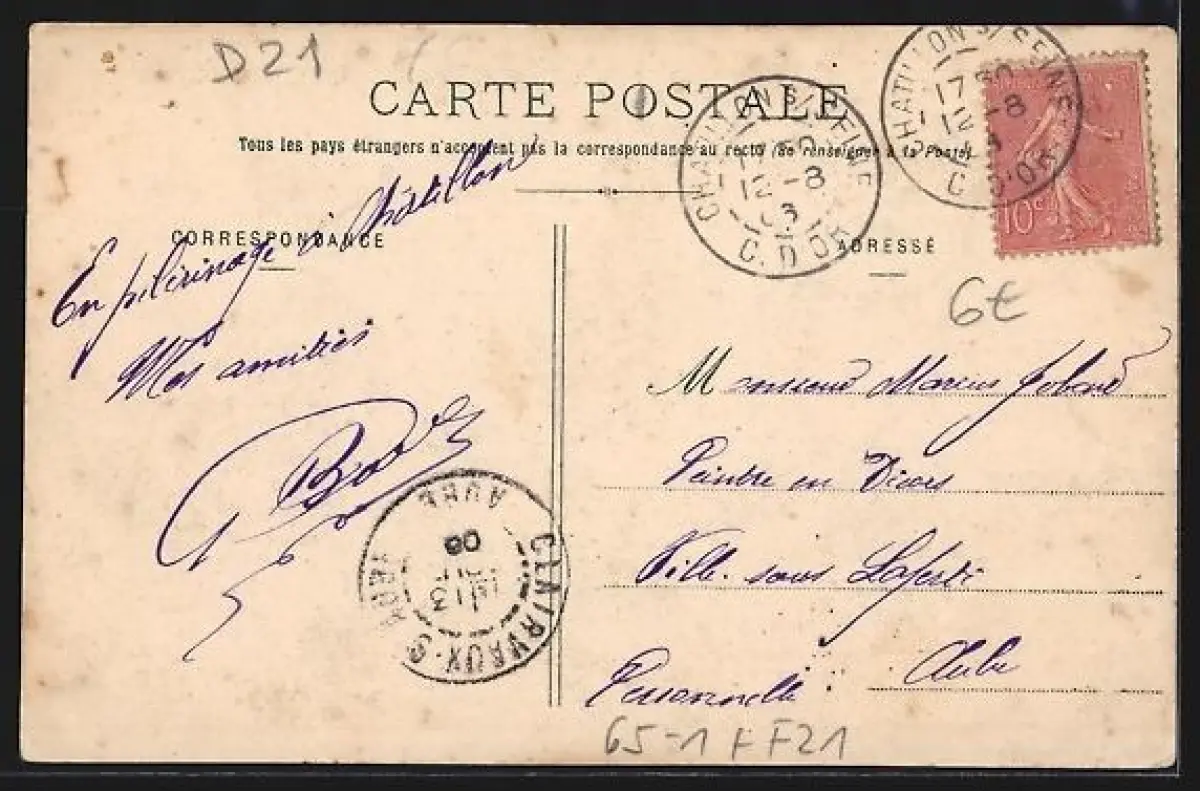 D21
CARTE POSTALE
Tous les pays étrangers n'acceptent pas la correspondance au recto (se renseigner à la Poste)
CHATILLON S/ SEINE
17 30
12-8
C. D'OR
CHATILLON S/ SEINE
12-8
C. D'OR
10c
CORRESPONDANCE
ADRESSE
En pélerinage à Châtillon
Mes amitiés
6€
Monsieur Marcus
Peintre en Décors
Ville sous Laferté
Aube
Personnelle
CLAIRVAUX-S-AUBE
13
06
AUBE
65-1 FF21